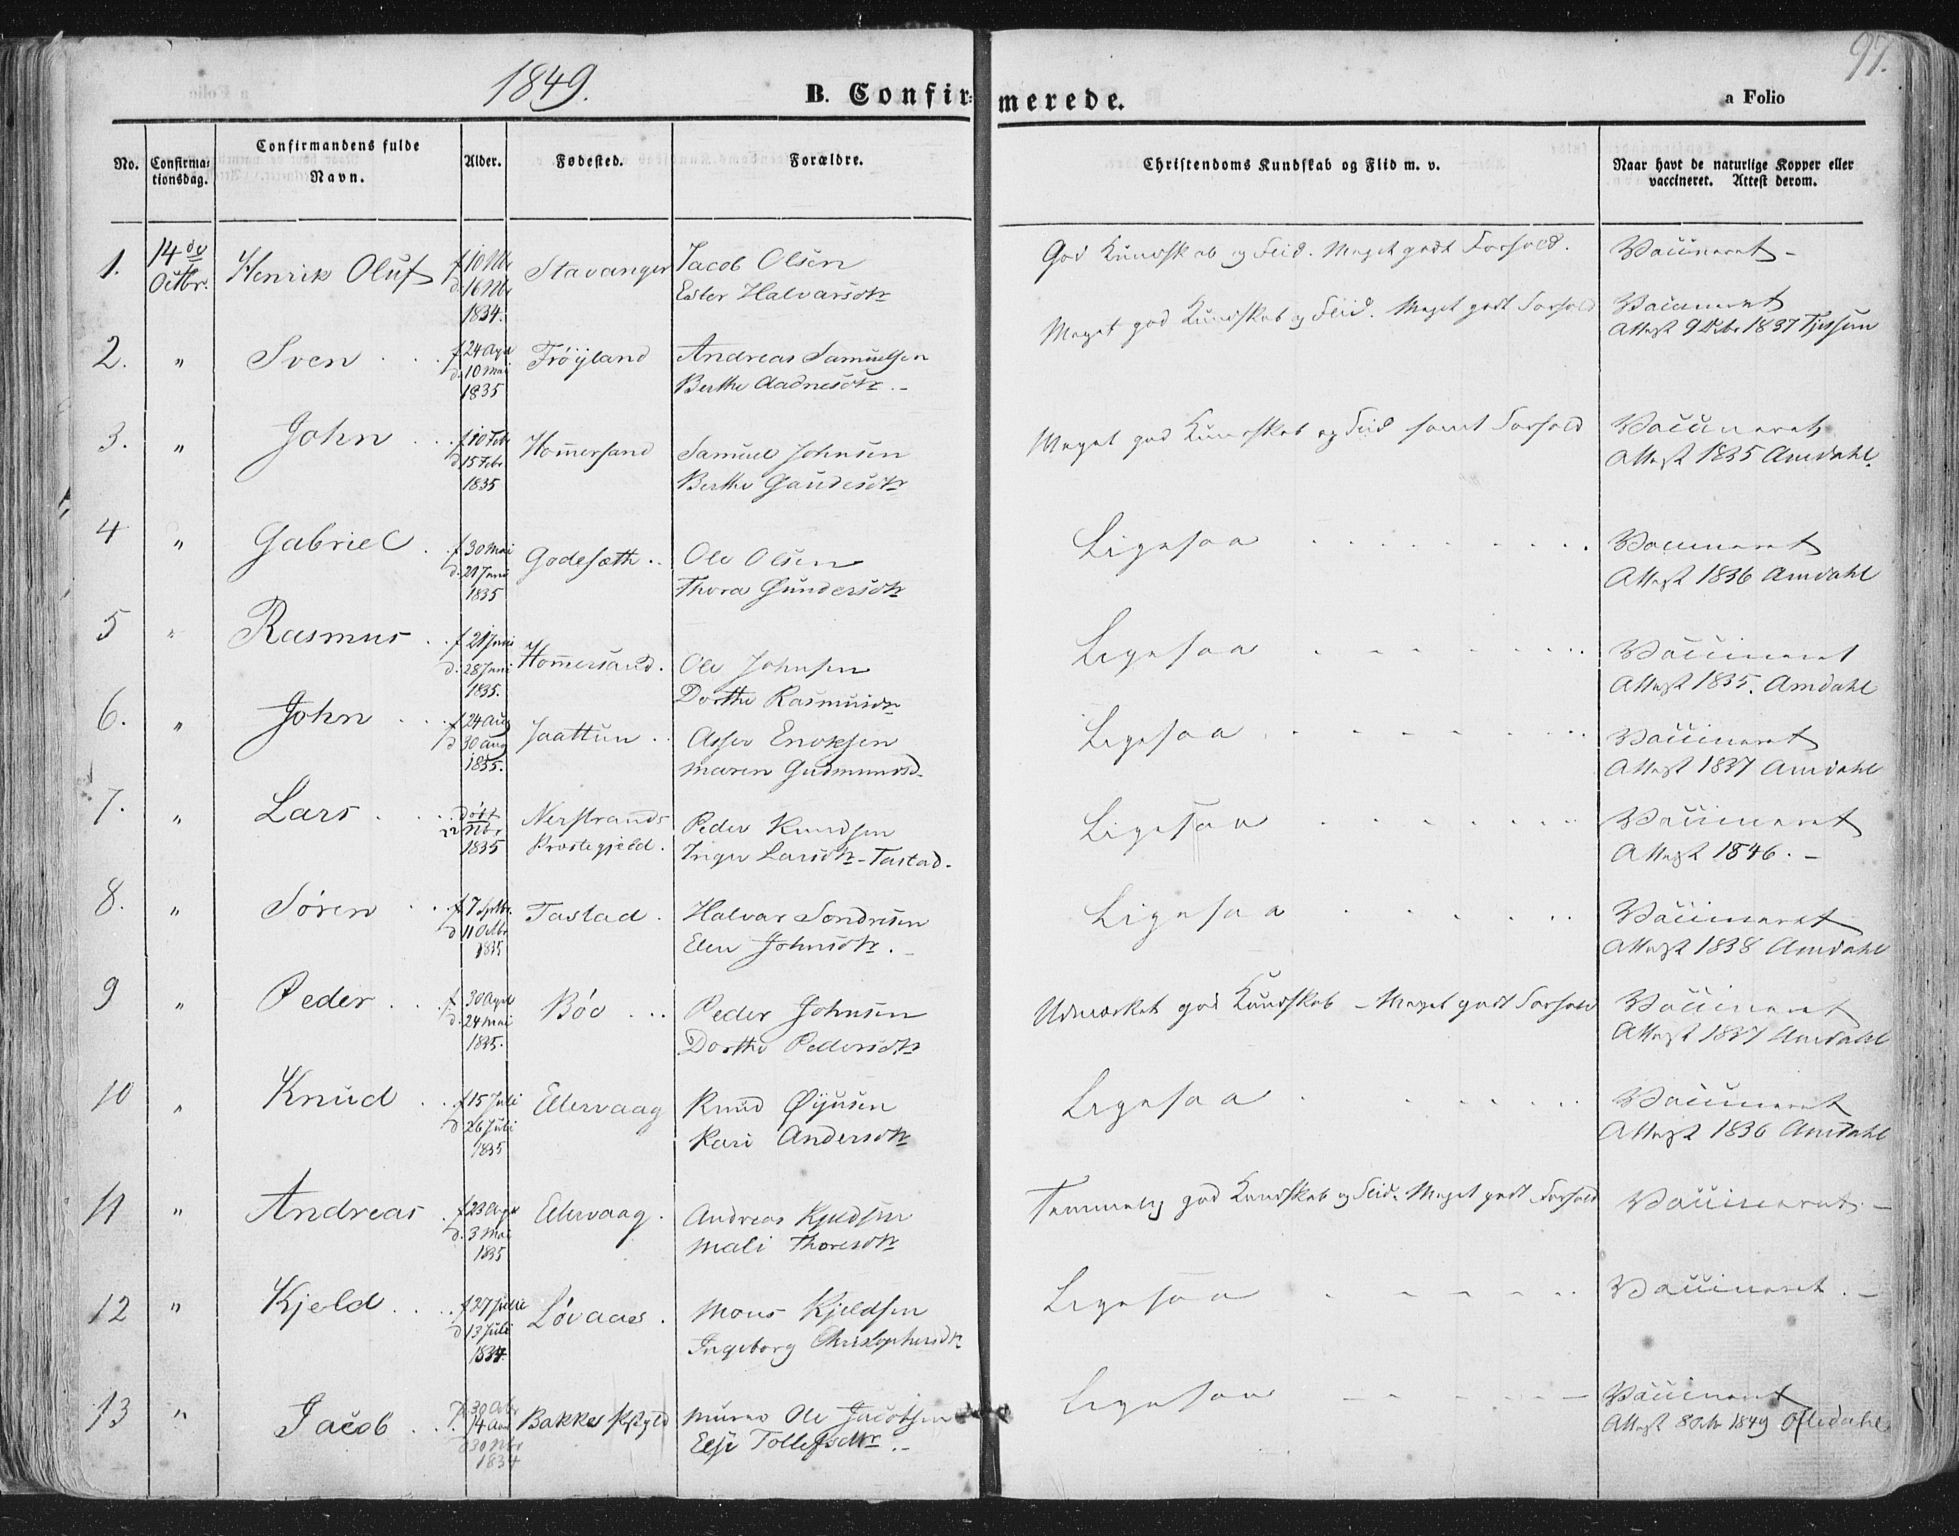 1849.
B. Confirmerede.
a Folio
97.
No.
Confirma-tionsdag.
Confirmandens fulde Navn.
Alder.
Fødested.
Forældre.
Christendoms Kundskab og Flid m. v.
Naar havt de naturlige Kopper eller vaccineret. Attest derom.
1. 14de Octbr. Henrik Oluf f 10 Nbr Stavanger Jacob Olsen God Kundskab og Flid. Meget godt Forhold. Vaccineret -
d. 16 Nbr Ester Halvarsdtr
1834.
2. " Sven f 24 Apr Frøyland Andreas Samuelsen Meget god Kundskab og Fliid. Meget godt Forhold Vaccineret
d. 10 Mai Berthe Aadnesdtr. - Attest 1837
1835
3. " John f. 10 Feb Hom̄ersand Samuel Johnsen Meget god Kundskab og Flid samt Forhold Vaccineret
d 15 Febr Berthe Gaudesdtr Attest 1835 Amdahl.
1835
4 " Gabriel f 30 Mai Godesæth Ole Olsen Ligesaa Vaccineret
d. 21 Juni Thora Gundersdtr Attest 1836 Amdahl
1835
5 " Rasmus f 21 Juni Hom̄ersand. Ole Johnsen Ligesaa Vaccineret
d. 28 Juni Dorthe Rasmusdtr Attest 1835. Amdahl
1835.
6. " John f 24 Aug Jaattun Asser Enoksen Ligesaa Vaccineret
d 30 Aug Maren Gudmunsd. Attest 1837 Amdahl
1835.
7. " Lars døbt Nerstrands Peder Knudsen Ligesaa Vaccineret
22 Nbr Præstegjeld. Inger Larsdtr - Tastad. Attest 1846. -
1835
8. " Søren f 7 Sptbr. Tastad. Halvar Sondresen Ligesaa Vaccineret
d 11 Octbr Elen Johnsdtr. - Attest 1838 Amdahl
1835
9 " Peder f. 30 April Bøe Peder Johnsen Udmærket god Kundskab - Meget godt Forhold Vaccineret
d. 24 Mai Dorthe Pedersdtr Attest 1837 Amdahl
1835.
10 " Knud f 15 Juli Ellervaag Knud Øjusen Ligesaa Vaccineret
d 26 Juli Kari Andersdtr Attest 1836 Amdahl
1835
11 " Andreas f 23 April Ellervaag. Andreas Kjeldsen Temmelig god Kundskab og Flid. Meget godt Forhold Vaccineret. -
d. 3 Mai Mali Thoresdtr
1835
12 " Kjeld Løvaaes. Mons Kjeldsen Ligesaa Vaccineret. -
d 13 Juli Ingeborg Christophersdtr
1834.
13 " Jacob Bakke Ole Jacobsen Ligesaa Vaccineret
d 30 Nbr Else Tollefsdtr. - Attest 1849 Oftedahl
1834